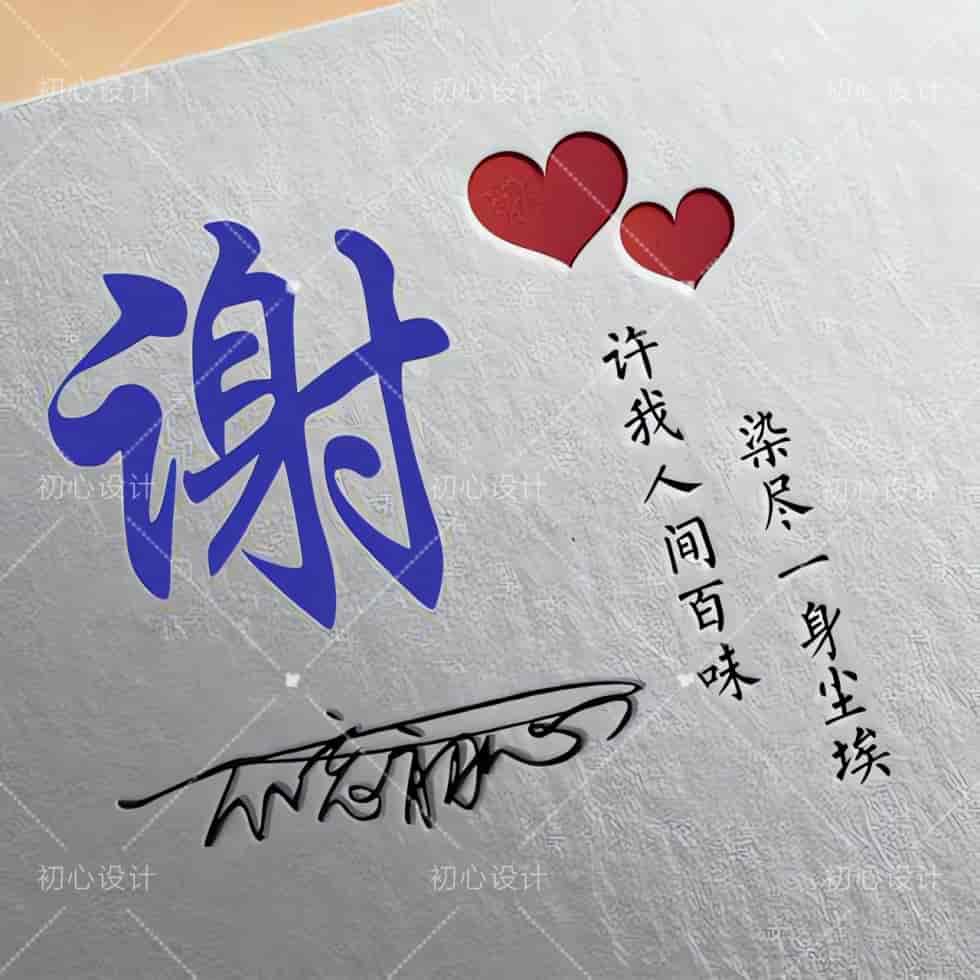 初心设计 初心设计 初心设计
谢
许我人间百味
染尽一身尘埃
初心设计 初心设计 初心设计
不忘初心
初心设计 初心设计 初心设计